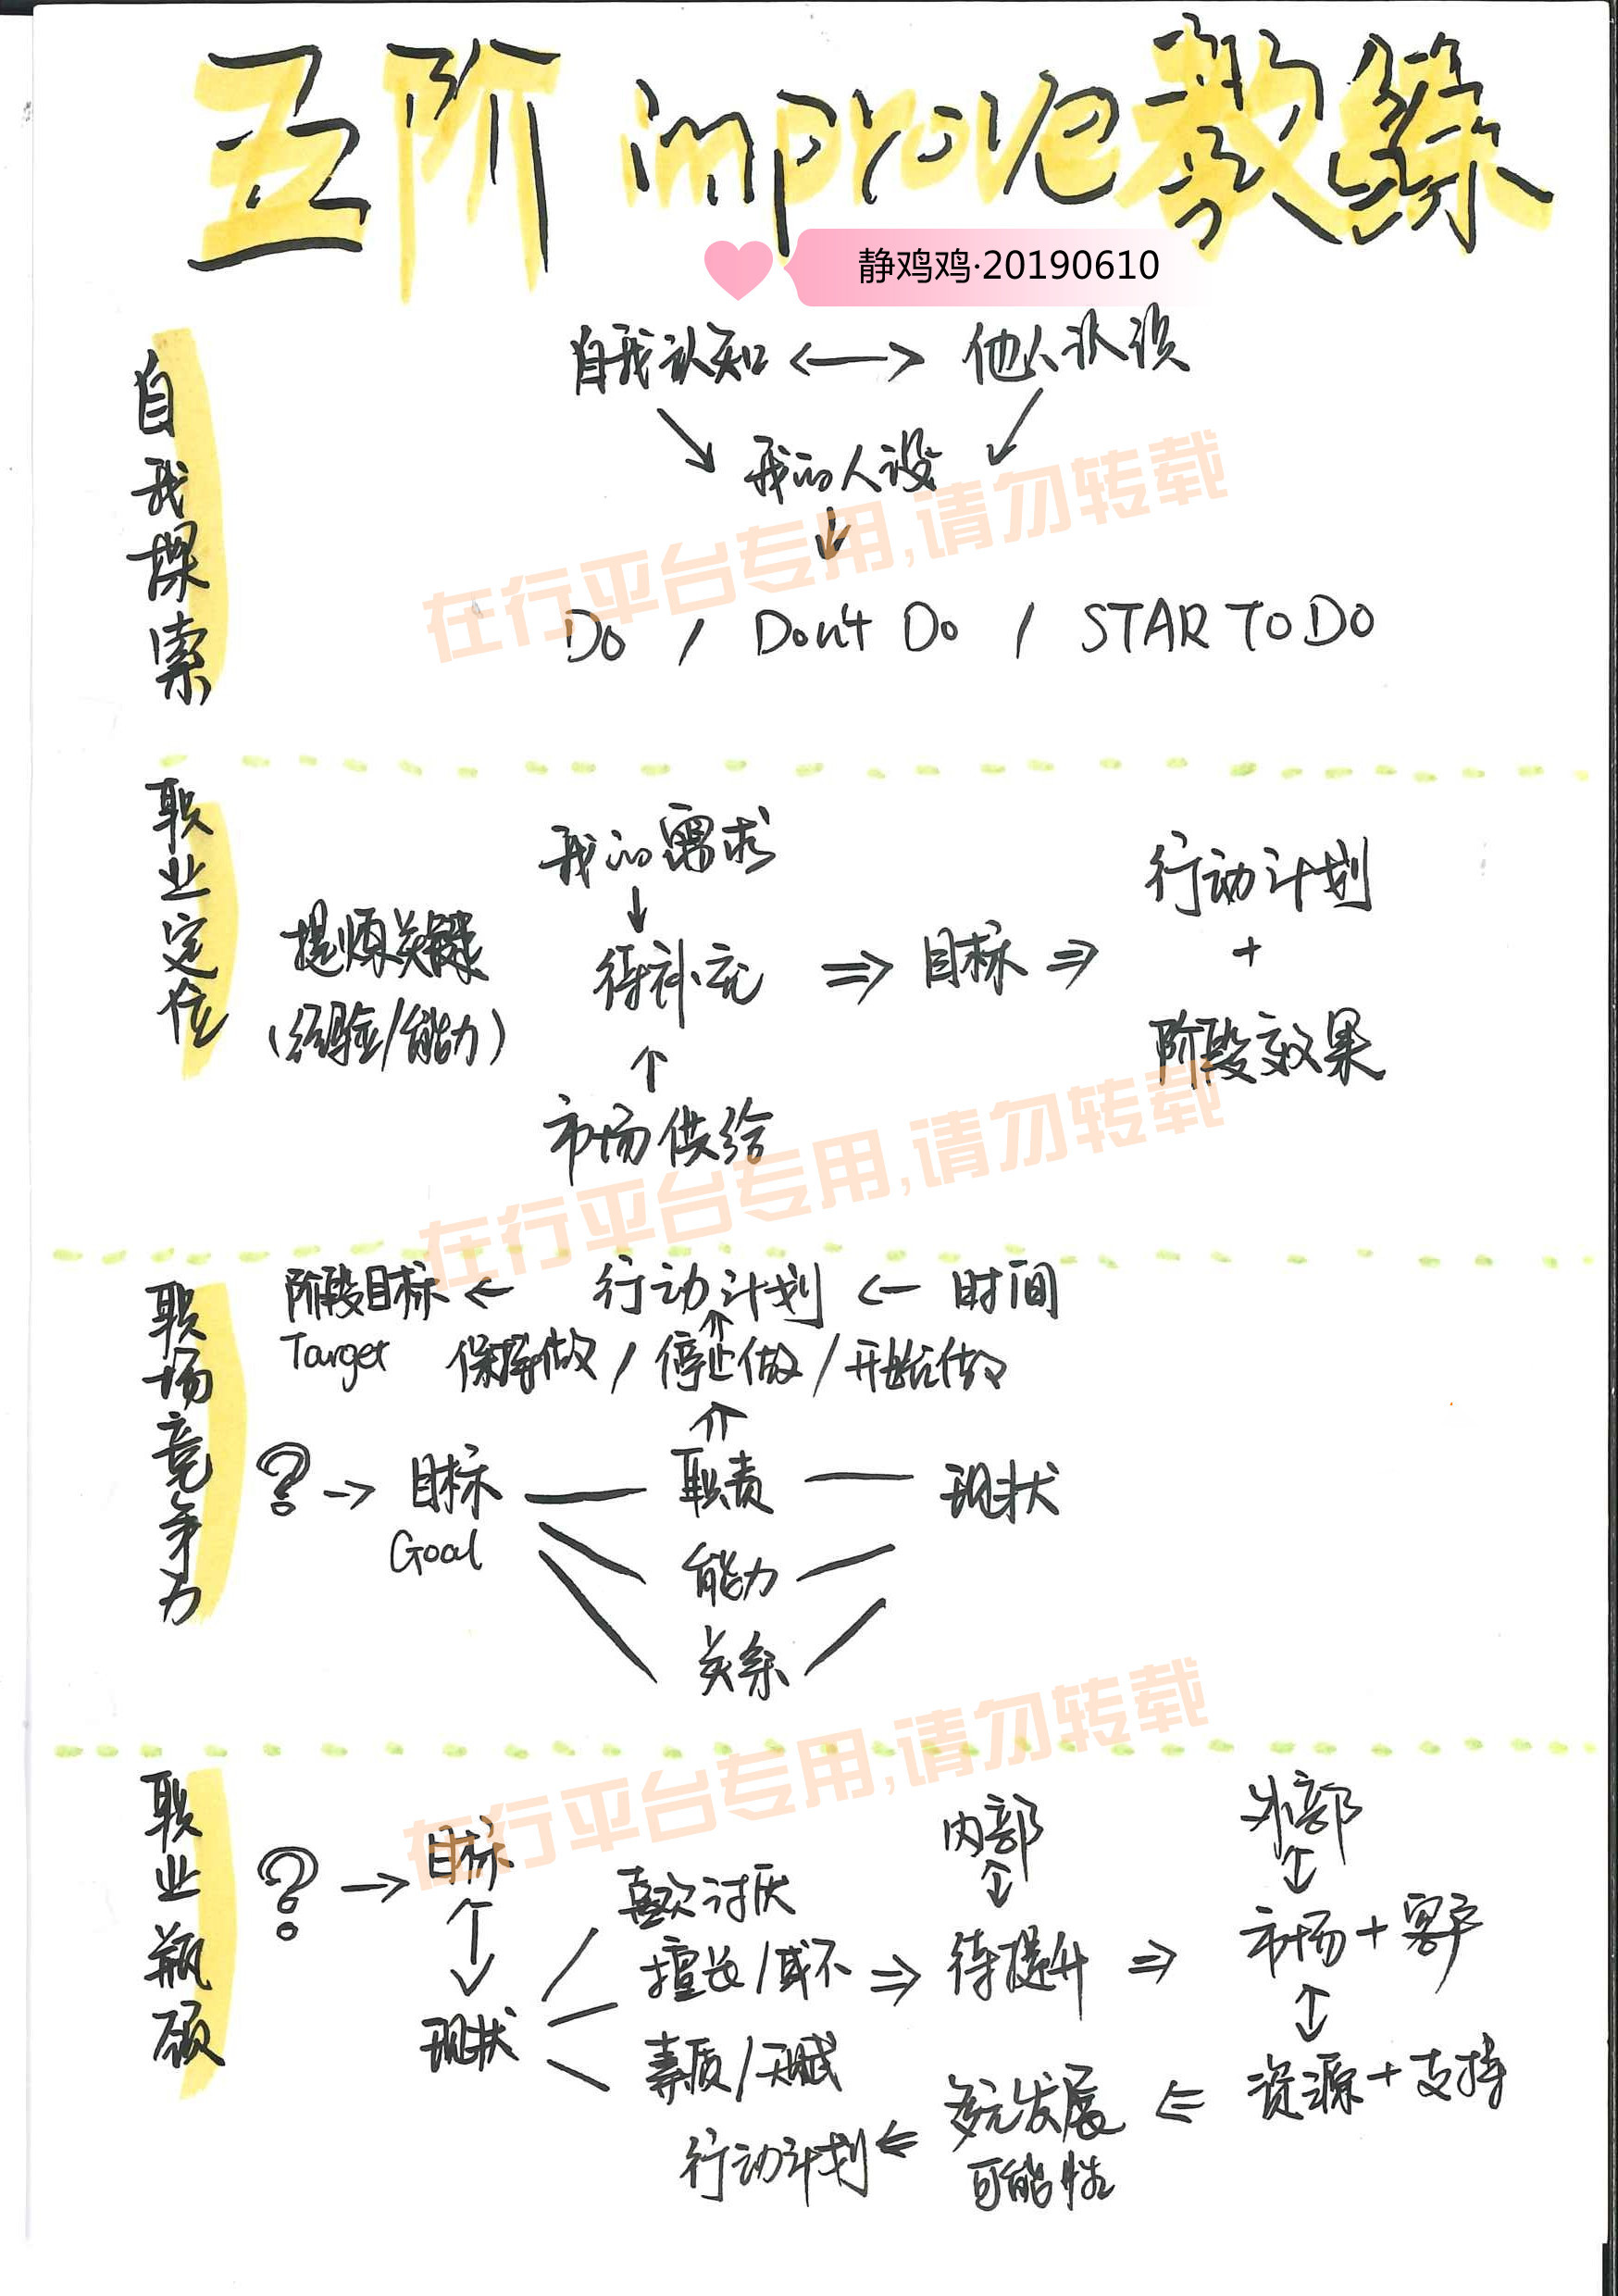 五阶 improve教练
静鸡鸡·20190610
自我探索
自我认知 ←→ 他人认识
↘ 我的人设 ↙
↓
在行平台专用,请勿转载
Do / Don't Do / START TO DO
职业定位
我的需求
↓
提炼关键
(经验/能力)
待补充 ⇒ 目标 ⇒
行动计划
+
阶段效果
↑
市场供给
在行平台专用,请勿转载
职场竞争力
阶段目标 ← 行动计划 ← 时间
Target 保持做 / 停止做 / 开始做
? → 目标 — 职责 — 现状
Goal
能力
关系
在行平台专用,请勿转载
职业瓶颈
? → 目标
现状
喜欢讨厌
擅长/或不 ⇒ 待提升 ⇒ 市场+客户
素质/天赋
内部
外部
资源+支持
行动计划 ⇐ 多元发展 ⇐
可能性